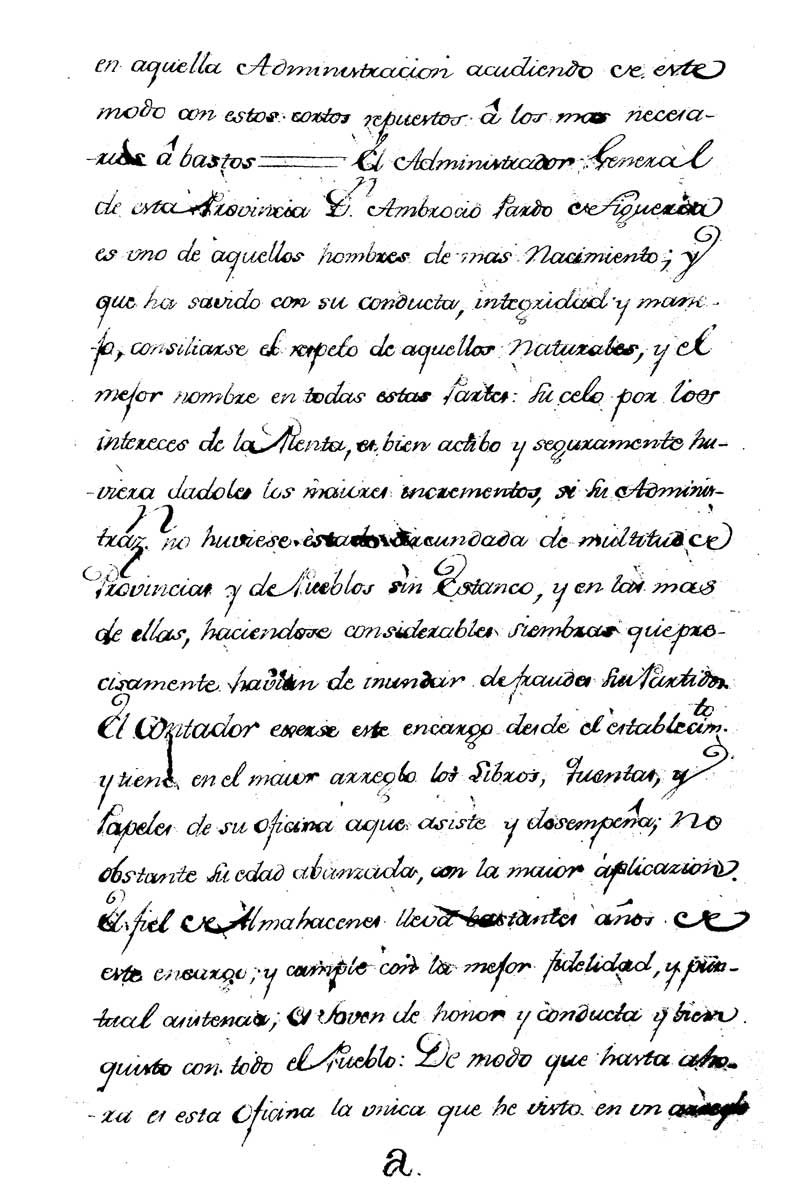 en aquella Administracion acudiendo de este
modo con estos cortos repuestos â los mas necesa-
-rios âbastos ═══ El Administrador General
de esta Provincia D.n Ambrocio Pardo de Figueroa
es uno de aquellos hombres de mas Nacimiento; y
que ha savido con su conducta, integridad y mane-
-jo, consiliarse el respeto de aquellos Naturales, y el
mejor nombre en todas estas Partes: Su celo por los
intereces de la Renta, es bien actibo y seguramente hu-
-viera dadoles los maiores incrementos, si su Adminis-
traz.n no huviese estado circundada de multitud de
Provincias y de Pueblos sin Estanco, y en las mas
de ellas, haciendose considerables siembras que pre-
cisamente havian de inundar de fraudes su Partido.
El Contador exerse este encargo desde el establecim.to
y tiene en el maior arreglo los Libros, Quentas, y
Papeles de su oficina aque asiste y desempeña; no
obstante su edad abanzada, con la maior aplicazion.
El fiel de Almahacenes lleva bastantes años de
este encargo, y cumple con la mejor fidelidad, y pun-
tual asistencia; es Joven de honor y conducta y bien
quisto con todo el Pueblo: De modo que hasta aho-
-ra es esta Oficina la unica que he visto en un arreglo
a.